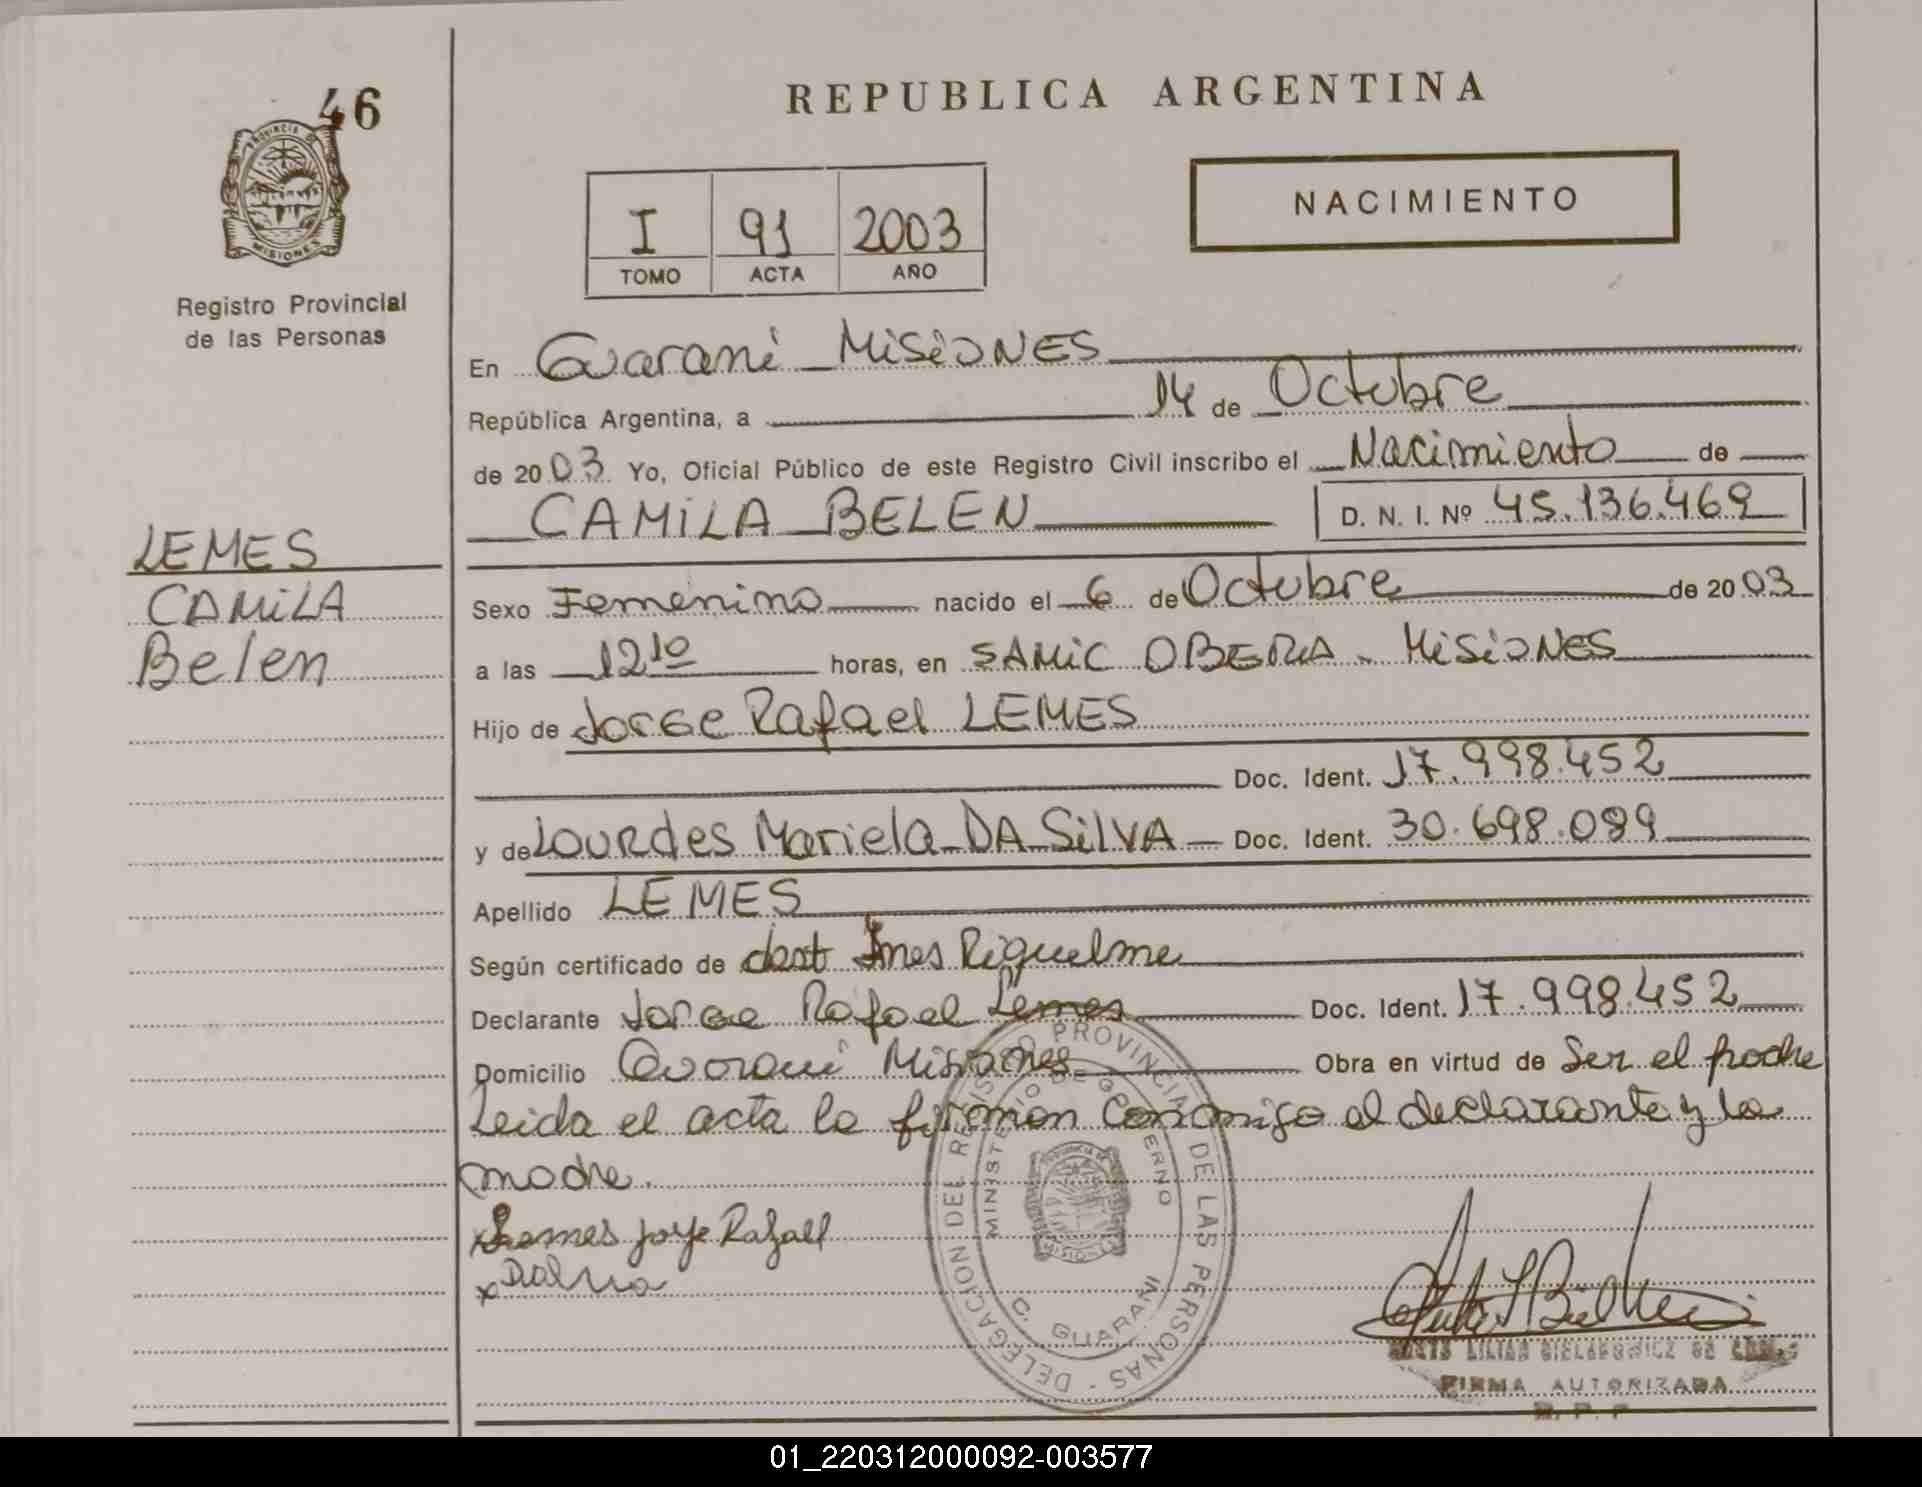 46
PROVINCIA DE
MISIONES
Registro Provincial
de las Personas
REPUBLICA ARGENTINA
I 91 2003
TOMO ACTA AÑO
NACIMIENTO
En Guarani Misiones
República Argentina, a 14 de Octubre
de 2003 Yo, Oficial Público de este Registro Civil inscribo el Nacimiento de
CAMILA BELEN D. N. I. Nº 45.136.469
LEMES
CAMILA
Belen
Sexo Femenino nacido el 6 de Octubre de 2003
a las 12 10 horas, en SAMIC OBERA - Misiones
Hijo de Jorge Rafael LEMES
Doc. Ident. 17.998.452
y de Lourdes Mariela DA SILVA Doc. Ident. 30.698.089
Apellido LEMES
Según certificado de Ines Riquelme
Declarante Jorge Rafael Lemes Doc. Ident. 17.998.452
Domicilio Guarani Misiones Obra en virtud de Ser el padre
Leida el acta la firman conmigo el declarante y la
madre.
x Lemes Jorge Rafael
x
DELEGACION DEL REGISTRO PROVINCIAL DE LAS PERSONAS
MINISTERIO DE GOBIERNO
C. GUARANI
MISIONES
LILIAN
FIRMA AUTORIZADA
R. P. P
01_220312000092-003577